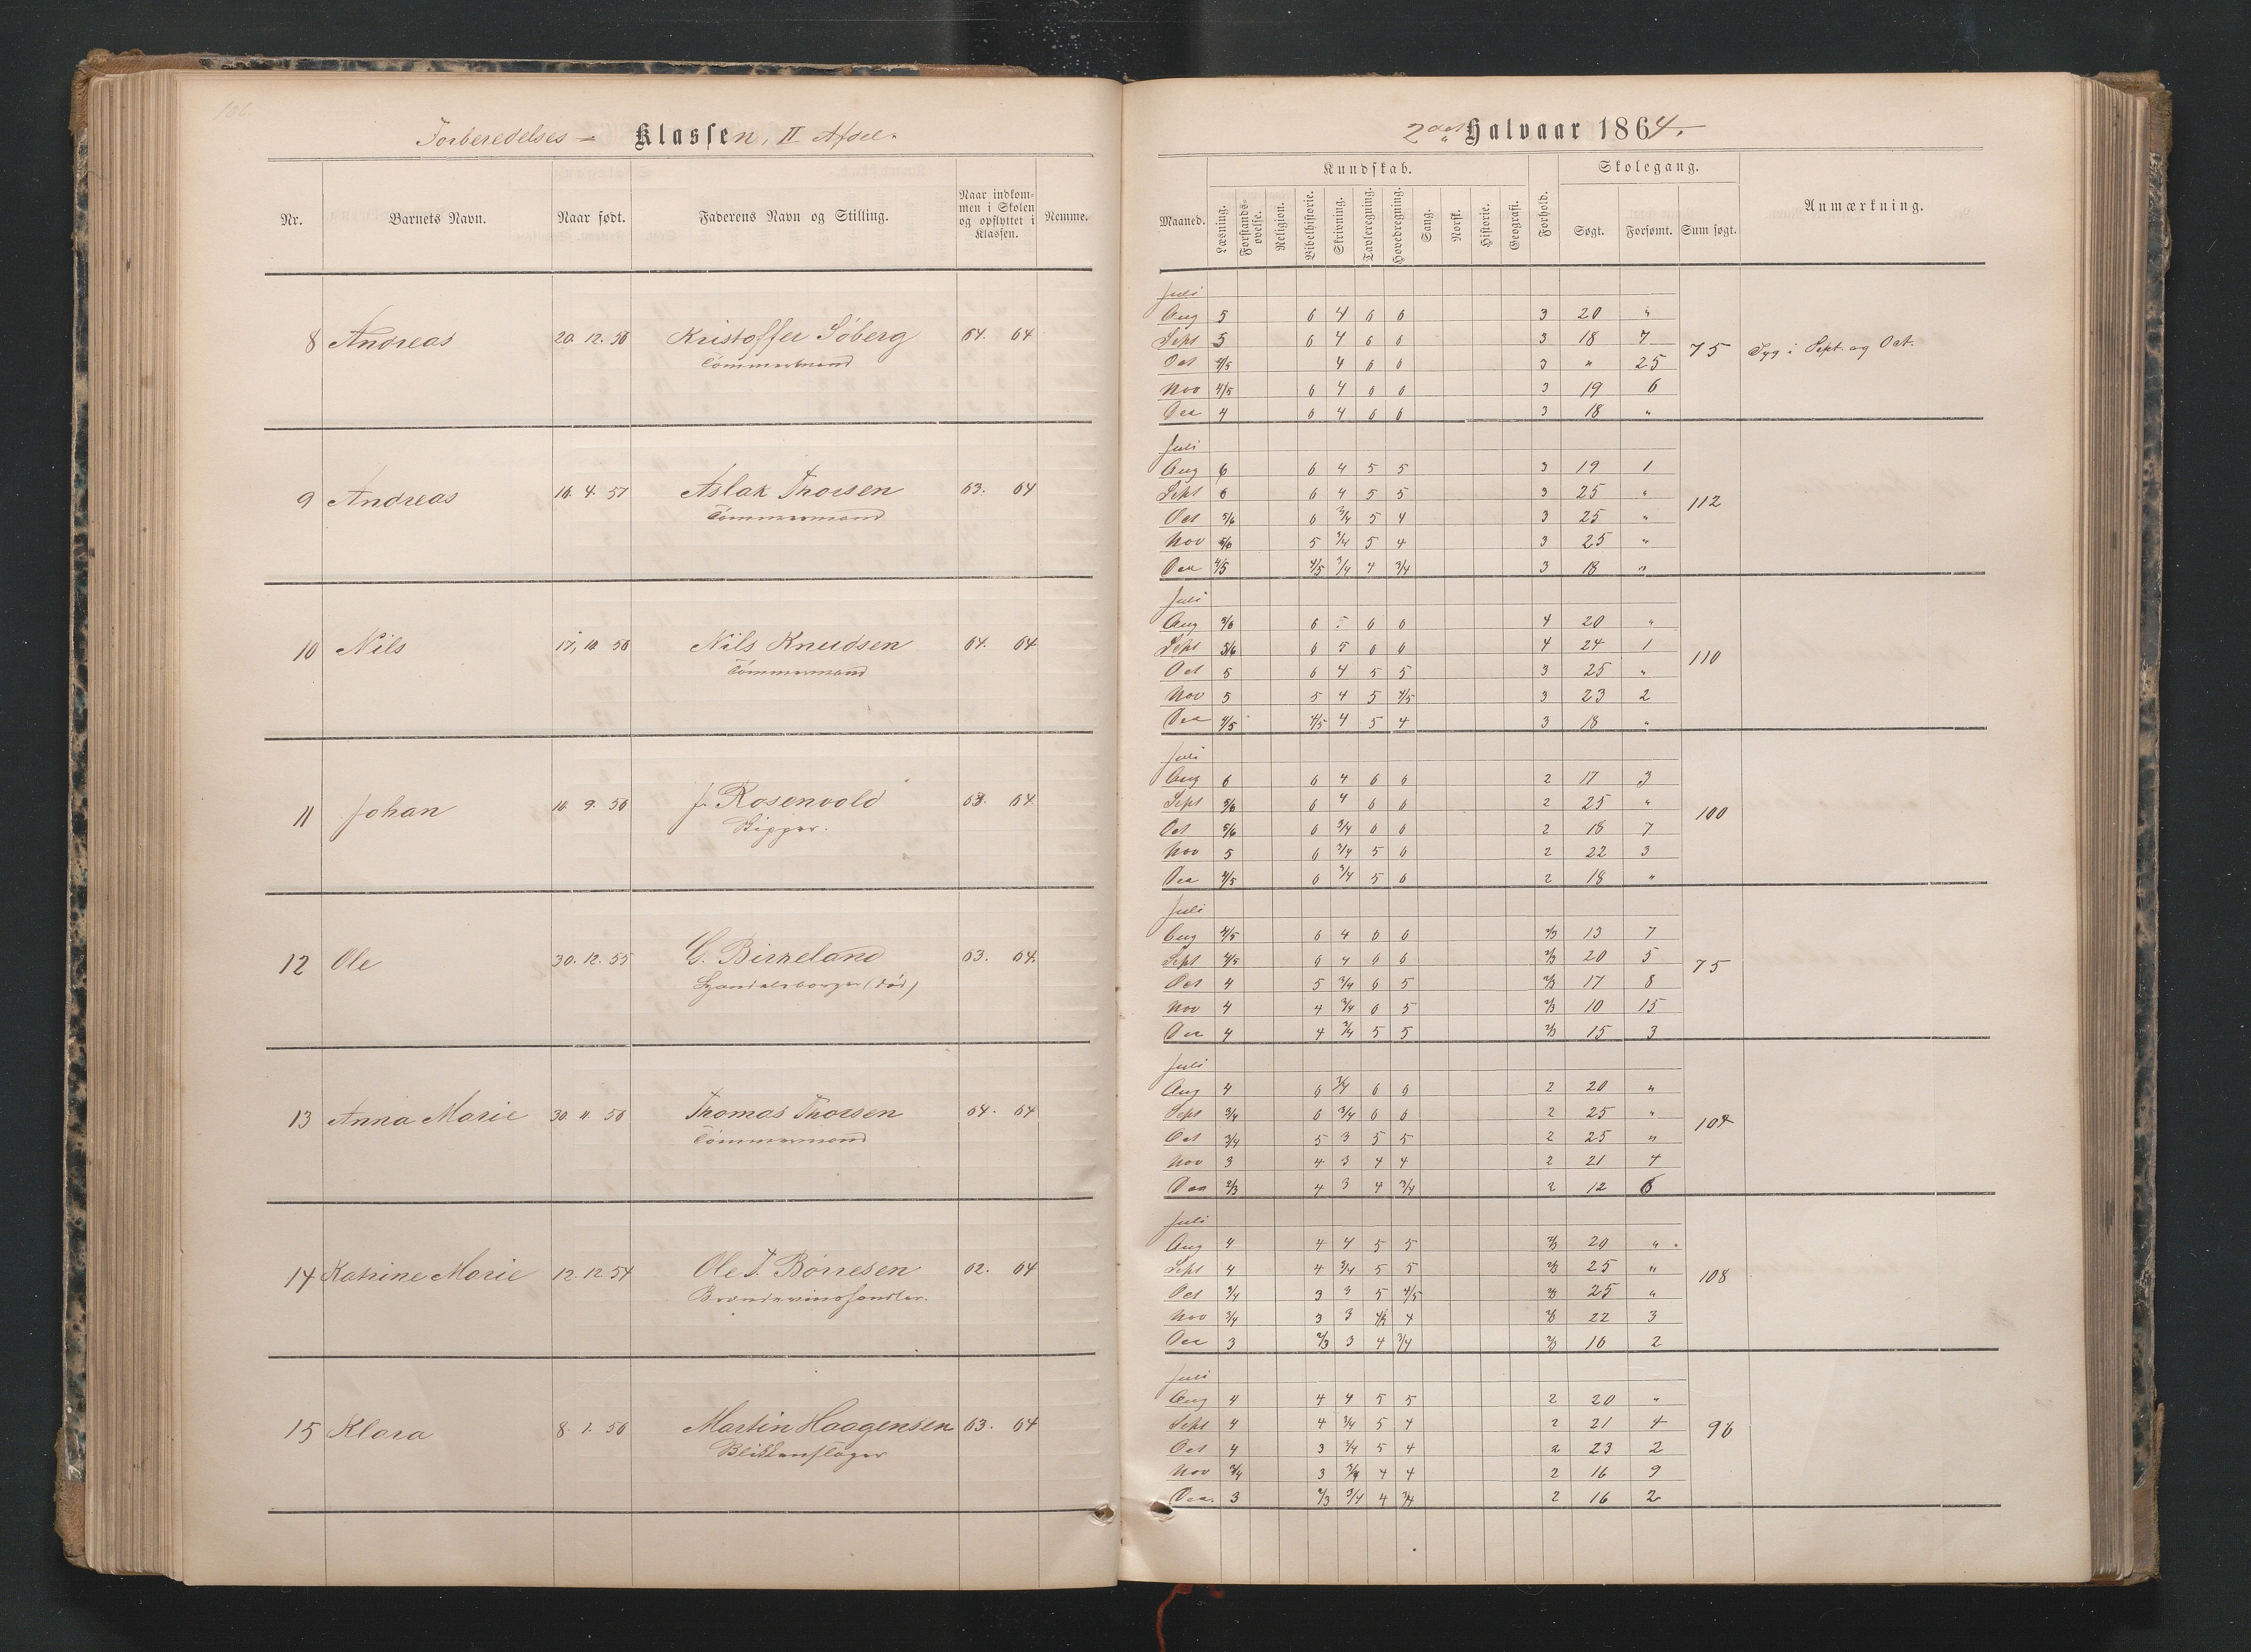 186
Forberedelses- Klassen, II Afdel.
Nr. Barnets Navn. Naar født. Faderens Navn og Stilling. Naar indkommen i Skolen og opflyttet i Klassen. Nemme.
8 Andreas 20. 12. 56 Kristoffer Söberg 64. 64
Tömmermand
9 Andreas 16. 4. 57 Aslak Thorsen 63. 64
Tömmermand
10 Nils 17, 10 56 Nils Knudsen 64. 64
Tömmermand
11 Johan 16 9. 56 J. Rosenvold 63. 64
Skipper.
12 Ole 30. 12. 55 C. Birkeland 63. 64.
Handelsborger (död)
13 Anna Marie 30. 11. 56 Thomas Thorsen 64. 64
Tömmermand
14 Katrine Marie 12. 12. 54 Ole T. Börresen 62. 64
Brændevinshandler.
15 Klara 8. 1. 56 Martin Haagensen 63. 64
Blikkenslager
2det Halvaar 1864.
Maaned. Kundskab. Forhold. Skolegang. Anmærkning.
Læsning. Forstandsøvelse. Religion. Bibelhistorie. Skrivning. Tavleregning. Hovedregning. Sang. Norsk. Historie. Geografi. Søgt. Forsømt. Sum søgt.
Juli
Aug 5 6 4 6 6 3 20 "
Sept 5 6 4 6 6 3 18 7
Oct 4/5 4 6 6 3 " 25 75 Syg i Sept. og Oct.
Nov 4/5 6 4 6 6 3 19 6
Dec 4 6 4 6 6 3 18 "
Juli
Aug 6 6 4 5 5 3 19 1
Sept 6 6 4 5 5 3 25 "
Oct 5/6 6 3/4 5 4 3 25 " 112
Nov 5/6 5 3/4 5 4 3 25 "
Dec 4/5 4/5 3/4 4 3/4 3 18 "
Juli
Aug 5/6 6 5 6 6 4 20 "
Sept 5/6 6 5 6 6 4 24 1
Oct 5 6 4 5 5 3 25 " 110
Nov 5 5 4 5 4/5 3 23 2
Dec 4/5 4/5 4 5 4 3 18 "
Juli
Aug 6 6 4 6 6 2 17 3
Sept 5/6 6 4 6 6 2 25 "
Oct 5/6 6 3/4 6 6 2 18 7 100
Nov 5 6 3/4 5 6 2 22 3
Dec 4/5 6 3/4 5 6 2 18 "
Juli
Aug 4/5 6 4 6 6 2/3 13 7
Sept 4/5 6 4 6 6 2/3 20 5
Oct 4 5 3/4 6 5 2/3 17 8 75
Nov 4 4 3/4 6 5 2/3 10 15
Dec 4 4 3/4 5 5 2/3 15 3
Juli
Aug 4 6 3/4 6 6 2 20 "
Sept 3/4 6 3/4 6 6 2 25 "
Oct 3/4 5 3 5 5 2 25 " 104
Nov 3 4 3 4 4 2 21 4
Dec 2/3 4 3 4 3/4 2 12 6
Juli
Aug 4 4 4 5 5 2/3 20 "
Sept 4 4 3/4 5 5 2/3 25 "
Oct 3/4 3 3 5 4/5 2/3 25 " 108
Nov 3/4 3 3 4/5 4 2/3 22 3
Dec 3 2/3 3 4 3/4 2/3 16 2
Juli
Aug 4 4 4 5 5 2 20 "
Sept 4 4 3/4 5 4 2 21 4
Oct 4 3 3/4 5 4 2 23 2 96
Nov 3/4 3 3/4 4 4 2 16 9
Dec. 3 2/3 3/4 4 3/4 2 16 2